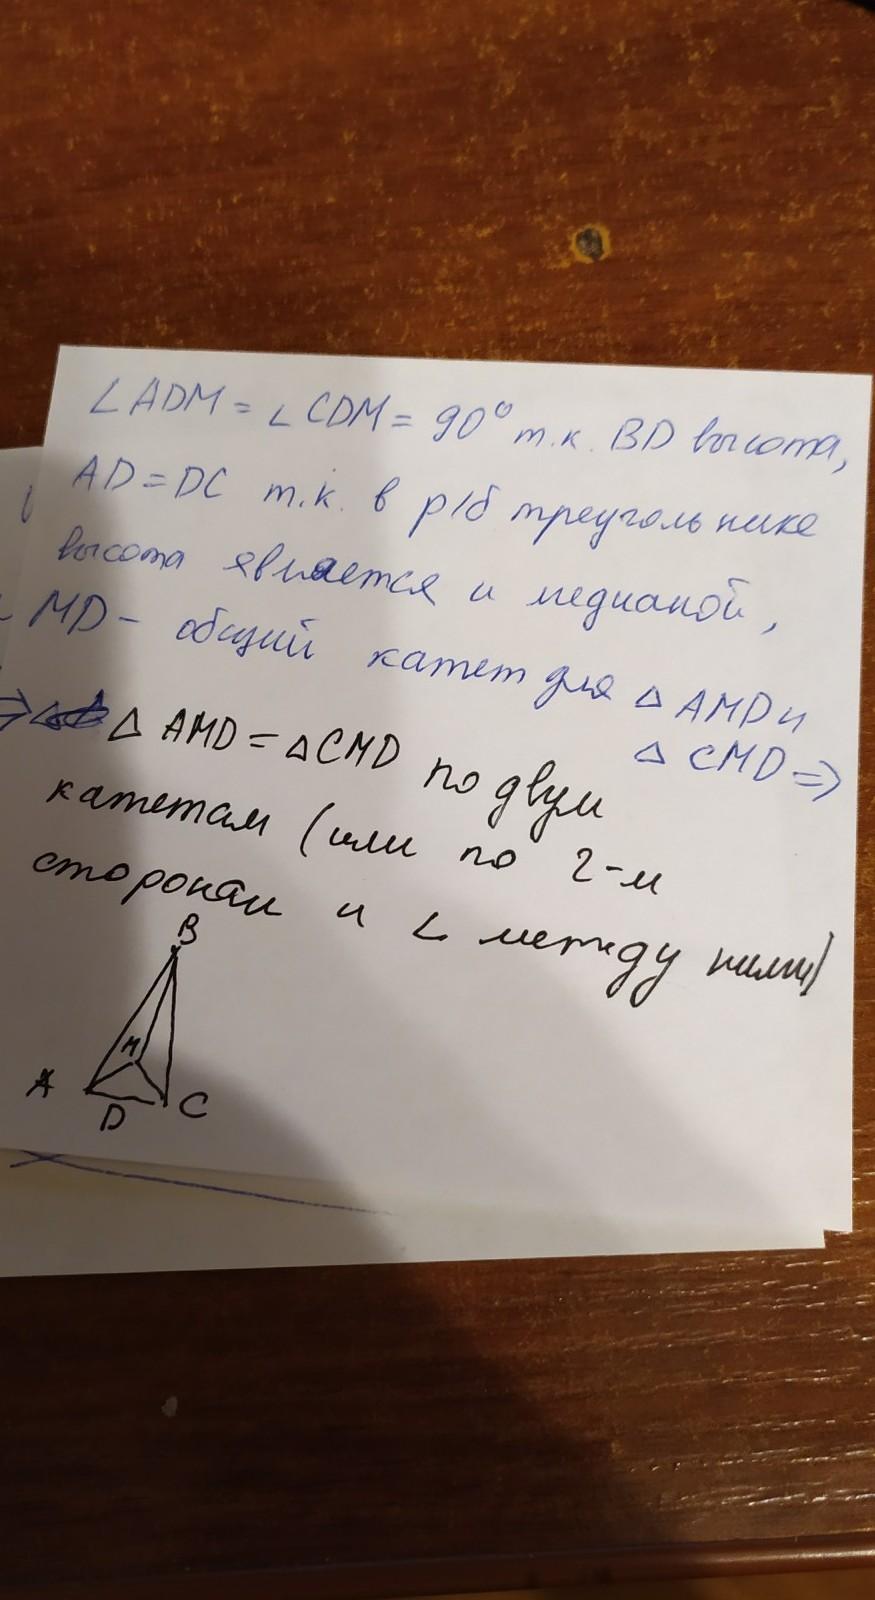 ∠ADM = ∠CDM = 90° т.к. BD высота,
AD = DC т.к. в р/б треугольнике
высота является и медианой,
MD - общий катет для △ AMD и
△ CMD ⇒
⇒ △ AMD = △ CMD по двум
катетам (или по 2-м
сторонам и ∠ между ними)
B
M
A
D
C